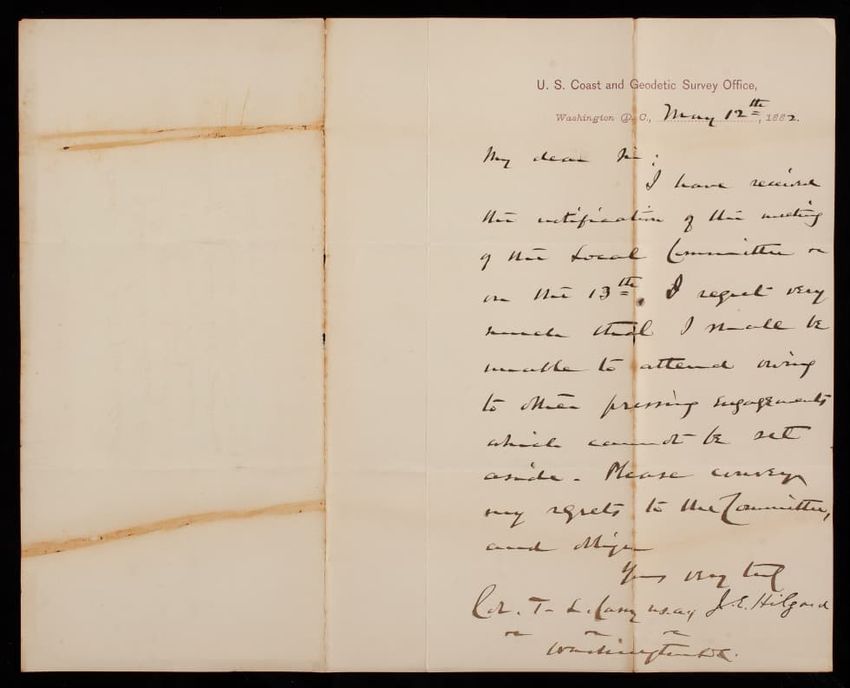 U. S. Coast and Geodetic Survey Office,
Washington D. C., May 12th, 1882.
My dear Sir:
I have received
the notification of the meeting
of the Local Committee
on the 13th. I regret very
much that I shall be
unable to attend owing
to other pressing engagements
which cannot be set
aside. Please convey
my regrets to the Committee,
and oblige
Yours very truly
Col. T. L. Casey U.S.A. J. E. Hilgard
Washington D.C.